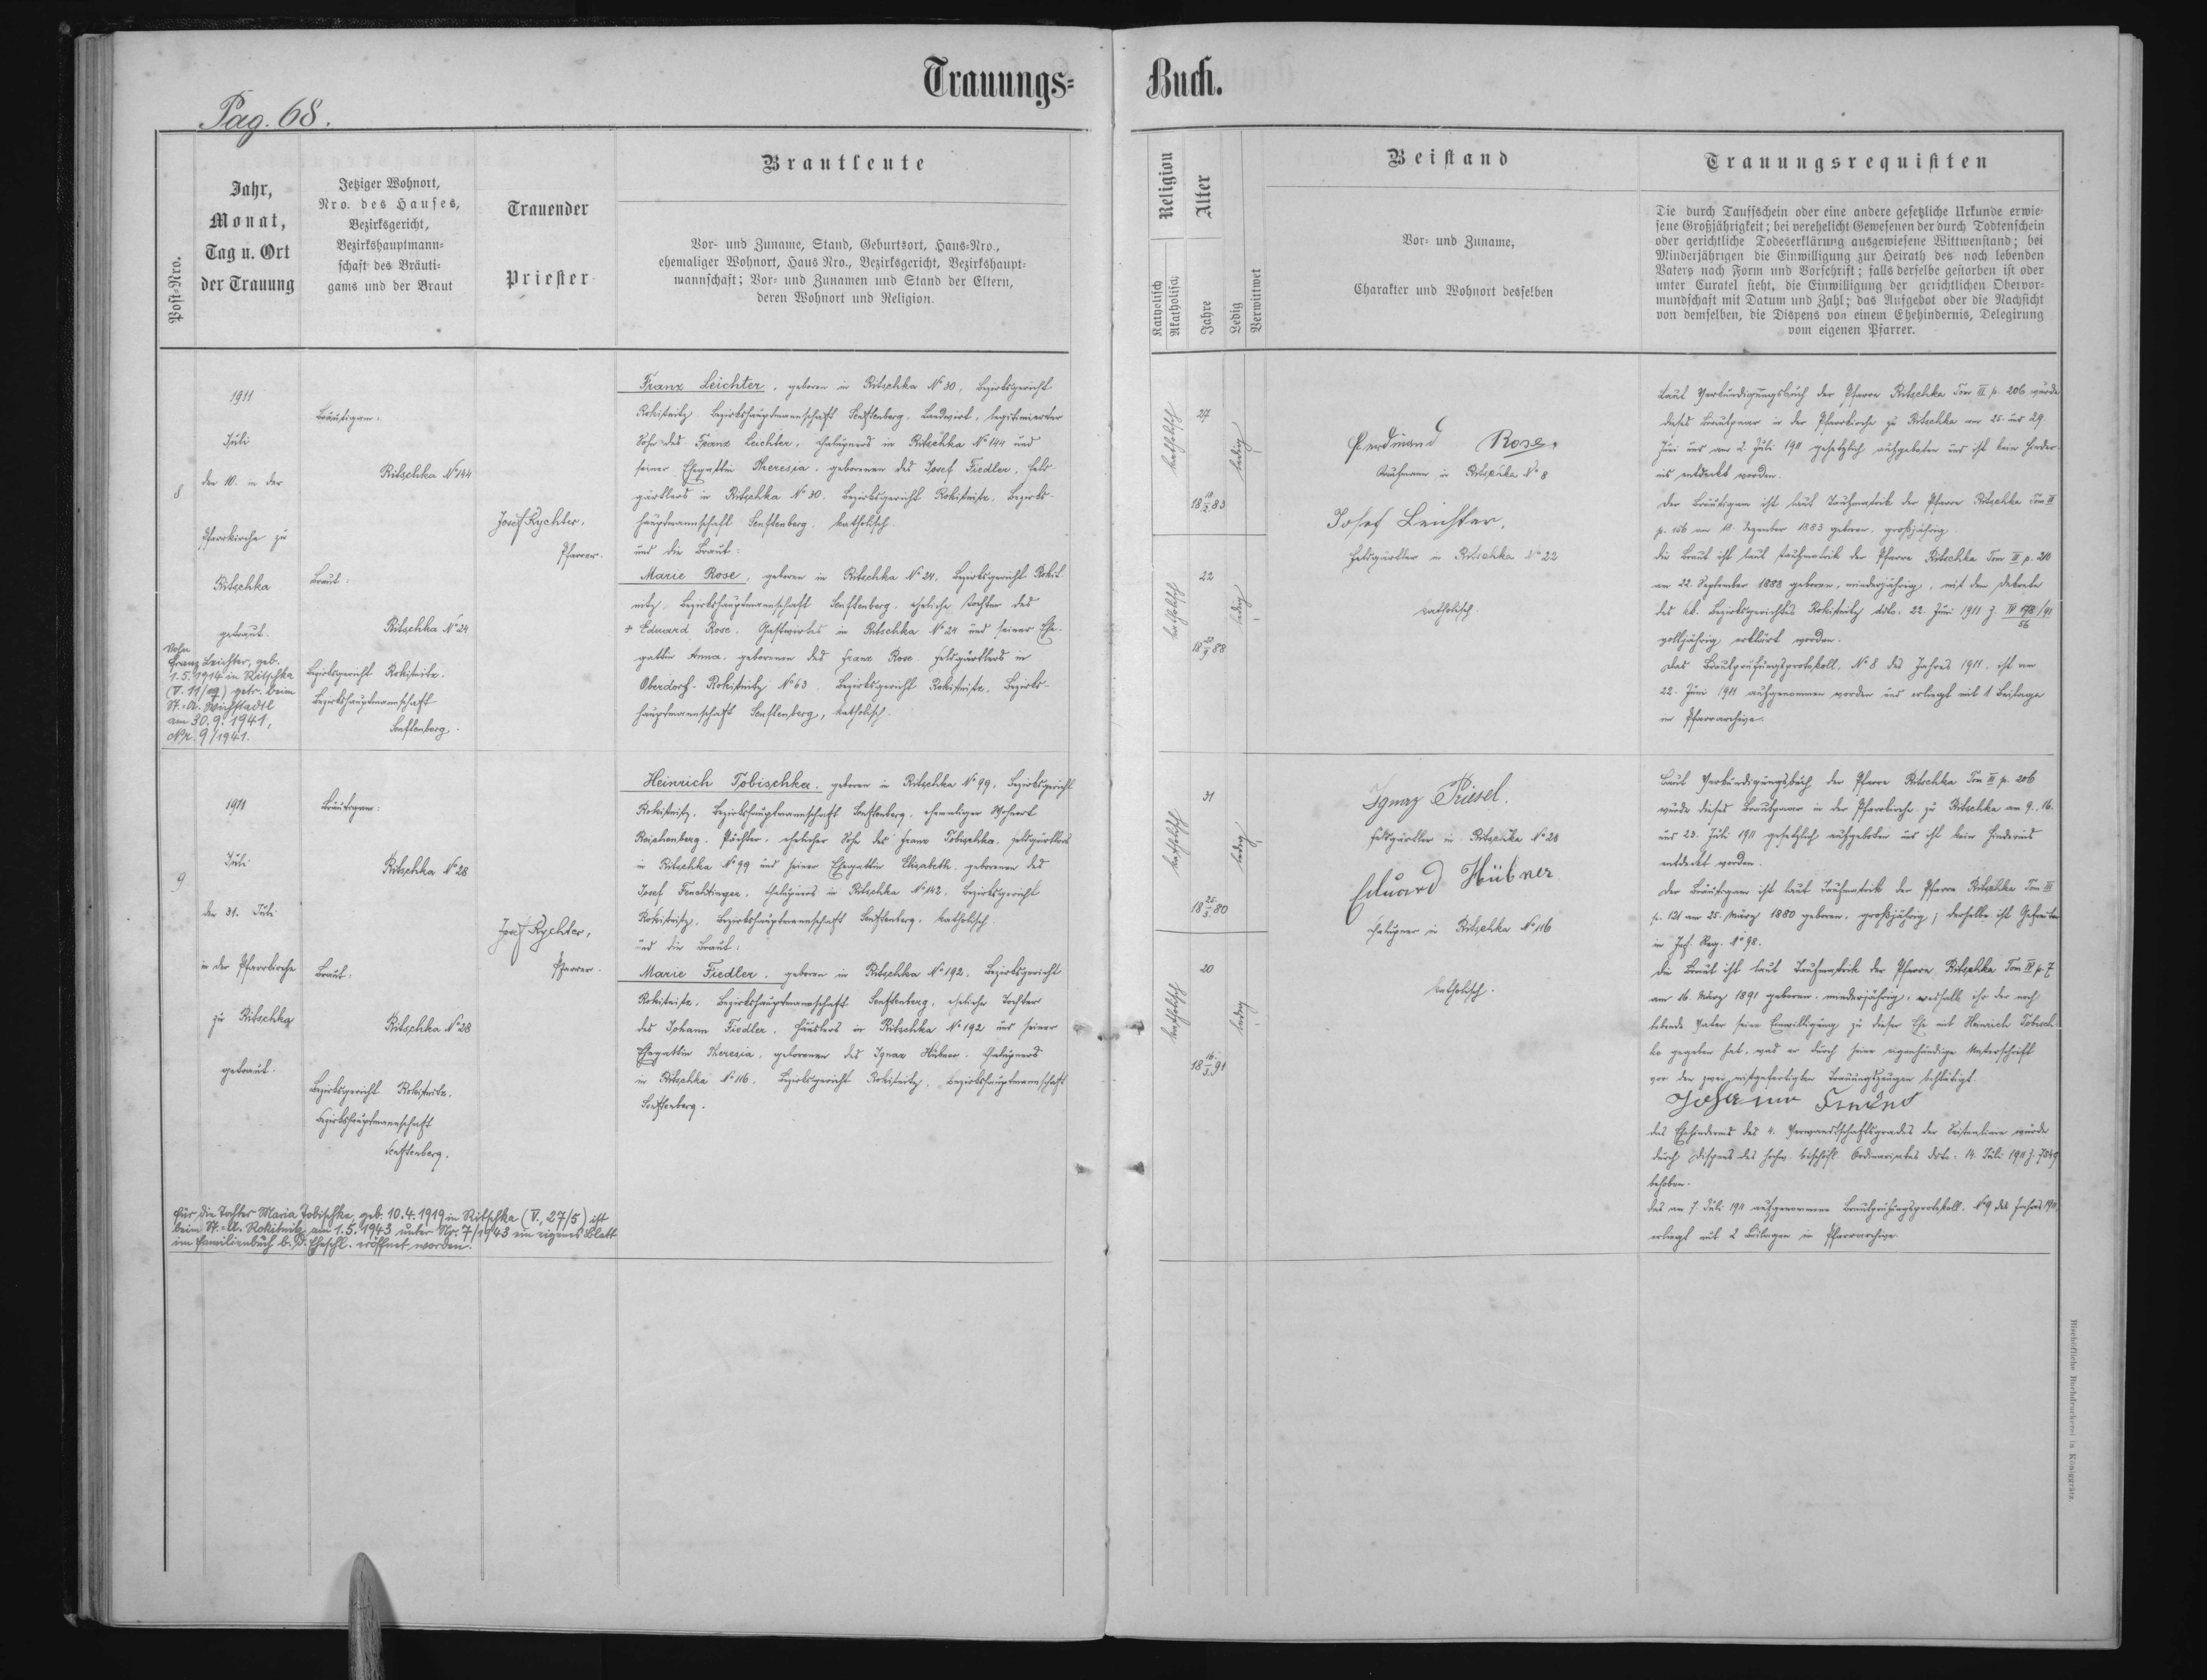 Trauungs=
Buch.
Pag. 68.
Post=Nro.
Jahr,
Monat,
Tag u. Ort
der Trauung
Jetziger Wohnort,
Nro. des Hauses,
Bezirksgericht,
Bezirkshauptmann=
schaft des Bräuti=
gams und der Braut
Trauender
Priester
Brautleute
Vor= und Zuname, Stand, Geburtsort, Haus=Nro.,
ehemaliger Wohnort, Haus Nro., Bezirksgericht, Bezirkshaupt=
mannschaft; Vor= und Zunamen und Stand der Eltern,
deren Wohnort und Religion.
8
1911
Juli
den 10. in der
Pfarrkirche zu
Ritschka
getraut.
Sohn
Franz Leichter, geb.
1.5.1914 in Ritschka
getr. beim
St.=A. Wichstadtl
am 30.9.1941,
Nr. 9/1941.
Bräutigam:
Ritschka No 144
Braut:
Ritschka No 24
Bezirksgericht Rokitnitz.
Bezirkshauptmannschaft
Senftenberg.
Josef Rychter,
Pfarrer.
Franz Leichter, geboren in Ritschka No 30, Bezirksgericht
Rokitnitz Bezirkshauptmannschaft Senftenberg, Landwirt, legitimierter
Sohn des Franz Leichter, Chalupners in Ritschka No 144 und
seiner Ehegattin Theresia, geborenen des Josef Fiedler, Feld-
gärtlers in Ritschka No 30. Bezirksgericht Rokitnitz. Bezirks-
hauptmannschaft Senftenberg. katholisch.
und die Braut:
Marie Rose, geboren in Ritschka No 24, Bezirksgericht Rokit-
nitz, Bezirkshauptmannschaft Senftenberg, eheliche Tochter des
+ Eduard Rose. Gastwirtes in Ritschka No 24 und seiner Ehe-
gattin Anna, geborenen des Franz Rose. Feldgärtlers in
Oberdorf-Rokitnitz No 63 Bezirksgericht Rokitnitz. Bezirks-
hauptmannschaft Senftenberg, katholisch.
9
1911
Juli
den 31. Juli
in der Pfarrkirche
zu Ritschka
getraut.
Bräutigam:
Ritschka No 28
Braut:
Ritschka No 28
Bezirksgericht Rokitnitz.
Bezirkshauptmannschaft
Senftenberg.
Josef Rychter,
Pfarrer.
Heinrich Tobischka, geboren in Ritschka No 99, Bezirksgericht
Rokitnitz, Bezirkshauptmannschaft Senftenberg, ehemaliger Wohnort
Reichenberg. Pächter, ehelicher Sohn des Franz Tobischka, Feldgärtlers
in Ritschka No 99 und seiner Ehegattin Elisabeth, geborenen des
Josef Feuchtinger, Chalupners in Ritschka No 142, Bezirksgericht
Rokitnitz, Bezirkshauptmannschaft Senftenberg, katholisch
und die Braut:
Marie Fiedler, geboren in Ritschka No 192. Bezirksgericht
Rokitnitz, Bezirkshauptmannschaft Senftenberg, eheliche Tochter
des Johann Fiedler, Häuslers in Ritschka No 192 und seiner
Ehegattin Theresia, geborenen des Ignaz Hübner, Chalupners
in Ritschka No 116. Bezirksgericht Rokitnitz, Bezirkshauptmannschaft
Senftenberg.
Für die Tochter Maria Tobischke, geb. 10.4.1919 in Ritschka (V., 27/5) ist
beim St.=A. Rokitnitz am 1.5.1943 unter Nr. 7/1943 ein eigenes Blatt
im Familienbuch b. d. Eheschl. eröffnet worden.
Religion
Katholisch
Akatholisch
Alter
Jahre
Ledig
Verwittwet
Beistand
Vor= und Zuname,
Charakter und Wohnort desselben
Trauungsrequisiten
Die durch Taufschein oder eine andere gesetzliche Urkunde erwie=
sene Großjährigkeit; bei verehelicht Gewesenen der durch Todtenschein
oder gerichtliche Todeserklärung ausgewiesene Wittwenstand; bei
Minderjährigen die Einwilligung zur Heirath des noch lebenden
Vaters nach Form und Vorschrift; falls derselbe gestorben ist oder
unter Curatel steht, die Einwilligung der gerichtlichen Obervor=
mundschaft mit Datum und Zahl; das Aufgebot oder die Nachsicht
von demselben, die Dispens von einem Ehehindernis, Delegirung
vom eigenen Pfarrer.
katholisch
27
ledig
katholisch
22
18 22/9 88
ledig
Ferdinand Rose,
Kaufmann in Ritschka No 8
Josef Leichter,
Feldgärtler in Ritschka No 22
katholisch.
Laut Verkündigungsbuch der Pfarre Ritschka Tom III p. 206 wurde
dieses Brautpaar in der Pfarrkirche zu Ritschka am 25. und 29.
Juni und am 2. Juli 1911 gesetzlich aufgeboten und ist kein Hinder-
nis entdeckt worden.
Der Bräutigam ist laut Taufmatrik der Pfarre Ritschka Tom III
Dezember 1883 geboren, großjährig.
die Braut ist laut Taufmatrik der Pfarre Ritschka Tom III p. 210
am 22. September 1888 geboren, minderjährig, mit dem Dekrete
des k.k. Bezirksgerichtes Rokitnitz ddto. 22. Juni 1911
volljährig erklärt worden.
Das Brautprüfungsprotokoll No 8 des Jahres 1911. ist am
22. Juni 1911 aufgenommen worden und erliegt mit 1 Beilage
im Pfarrarchive.
katholisch
31
18 25/3 80
ledig
katholisch
20
18 16/3 91
ledig
Ignaz Priesel.
Feldgärtler in Ritschka No 28
Eduard Hübner
Chalupner in Ritschka No 116
katholisch.
Laut Verkündigungsbuch der Pfarre Ritschka Tom III p. 206
wurde dieses Brautpaar in der Pfarrkirche zu Ritschka am 9., 16.
und 23. Juli 1911 gesetzlich aufgeboten und ist kein Hindernis
entdeckt worden.
Der Bräutigam ist laut Taufmatrik der Pfarre Ritschka Tom III
p. 121 am 25. März 1880 geboren, großjährig; derselbe ist Gefreiter
im Inf. Reg. No 98.
Die Braut ist laut Taufmatrik der Pfarre Ritschka Tom IV p. 7
am 16. März 1891 geboren, minderjährig, weshalb ihr der noch
lebende Vater seine Einwilligung zu dieser Ehe mit Heinrich Tobisch-
ka gegeben hat, was er durch seine eigenhändige Unterschrift
vor den zwei mitgefertigten Trauungszeugen bestätigt.
Johann
das Ehehindernis des 4. Verwandtschaftsgrades der Seitenlinie wurde
durch Dispens des hochw. bischöfl. Ordinariates ddto. 14. Juli 1911 Z. 7549
behoben.
das am 7. Juli 1911 aufgenommene Brautprüfungsprotokoll, No 9 des Jahres 1911,
erliegt mit 2 Beilagen im Pfarrarchive.
Bischöfliche Buchdruckerei in Königgrätz.